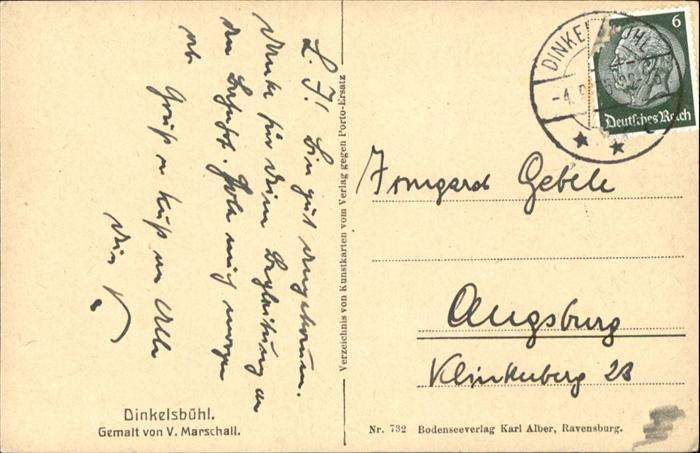 L. J! Bin gut angekommen.
Danke für Deine Begleitung an
den Bahnhof. Hole mich morgen
ab
Gruß u Kuß an Alle
Dein
Verzeichnis von Kunstkarten vom Verlag gegen Porto-Ersatz
Dinkelsbühl.
Gemalt von V. Marschall.
DINKELSBÜHL
6
Deutsches Reich
Irmgard Gebele
Augsburg
Klinkerberg 23
Nr. 732 Bodenseeverlag Karl Alber, Ravensburg.